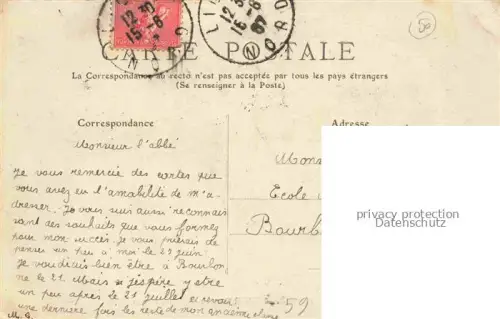 LI
12 30
15-8
NORD
12 30
15-8
07
50
CARTE POSTALE
La Correspondance au recto n'est pas acceptée par tous les pays étrangers
(Se renseigner à la Poste)
Correspondance
Adresse
Monsieur l'abbé
Je vous remercie des cartes que
vous avez eu l'amabilité de m'a-
dresser. Je vous suis aussi reconnais
sant des souhaits que vous formez
pour mon succès. Je vous prierais de
penser un peu à moi le 27 juin.
Je voudrais bien être à Bourbon
ne le 21. Mais si j'espère y être
un peu après le 21 juillet et revoir
une dernière fois les reste de mon ancienne classe
M. G.
Ecole
Bourb
59
privacy protection
Datenschutz